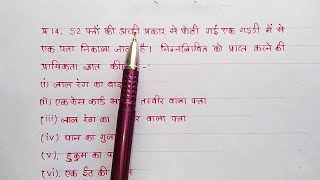 प्र 14. 52 पत्तों की अच्छी प्रकार से फेंटी गई एक गड्डी में से
एक पत्ता निकाला जाता है। निम्नलिखित को प्राप्त करने की
प्रायिकता ज्ञात की
(i) लाल रंग का बाद
(ii) एक फेस कार्ड अ तस्वीर वाला पत्ता
(iii) लाल रंग का वीर वाला पत्ता
(iv) पान का गुल
(v). हुकुम का प
(vi). एक ईंट की